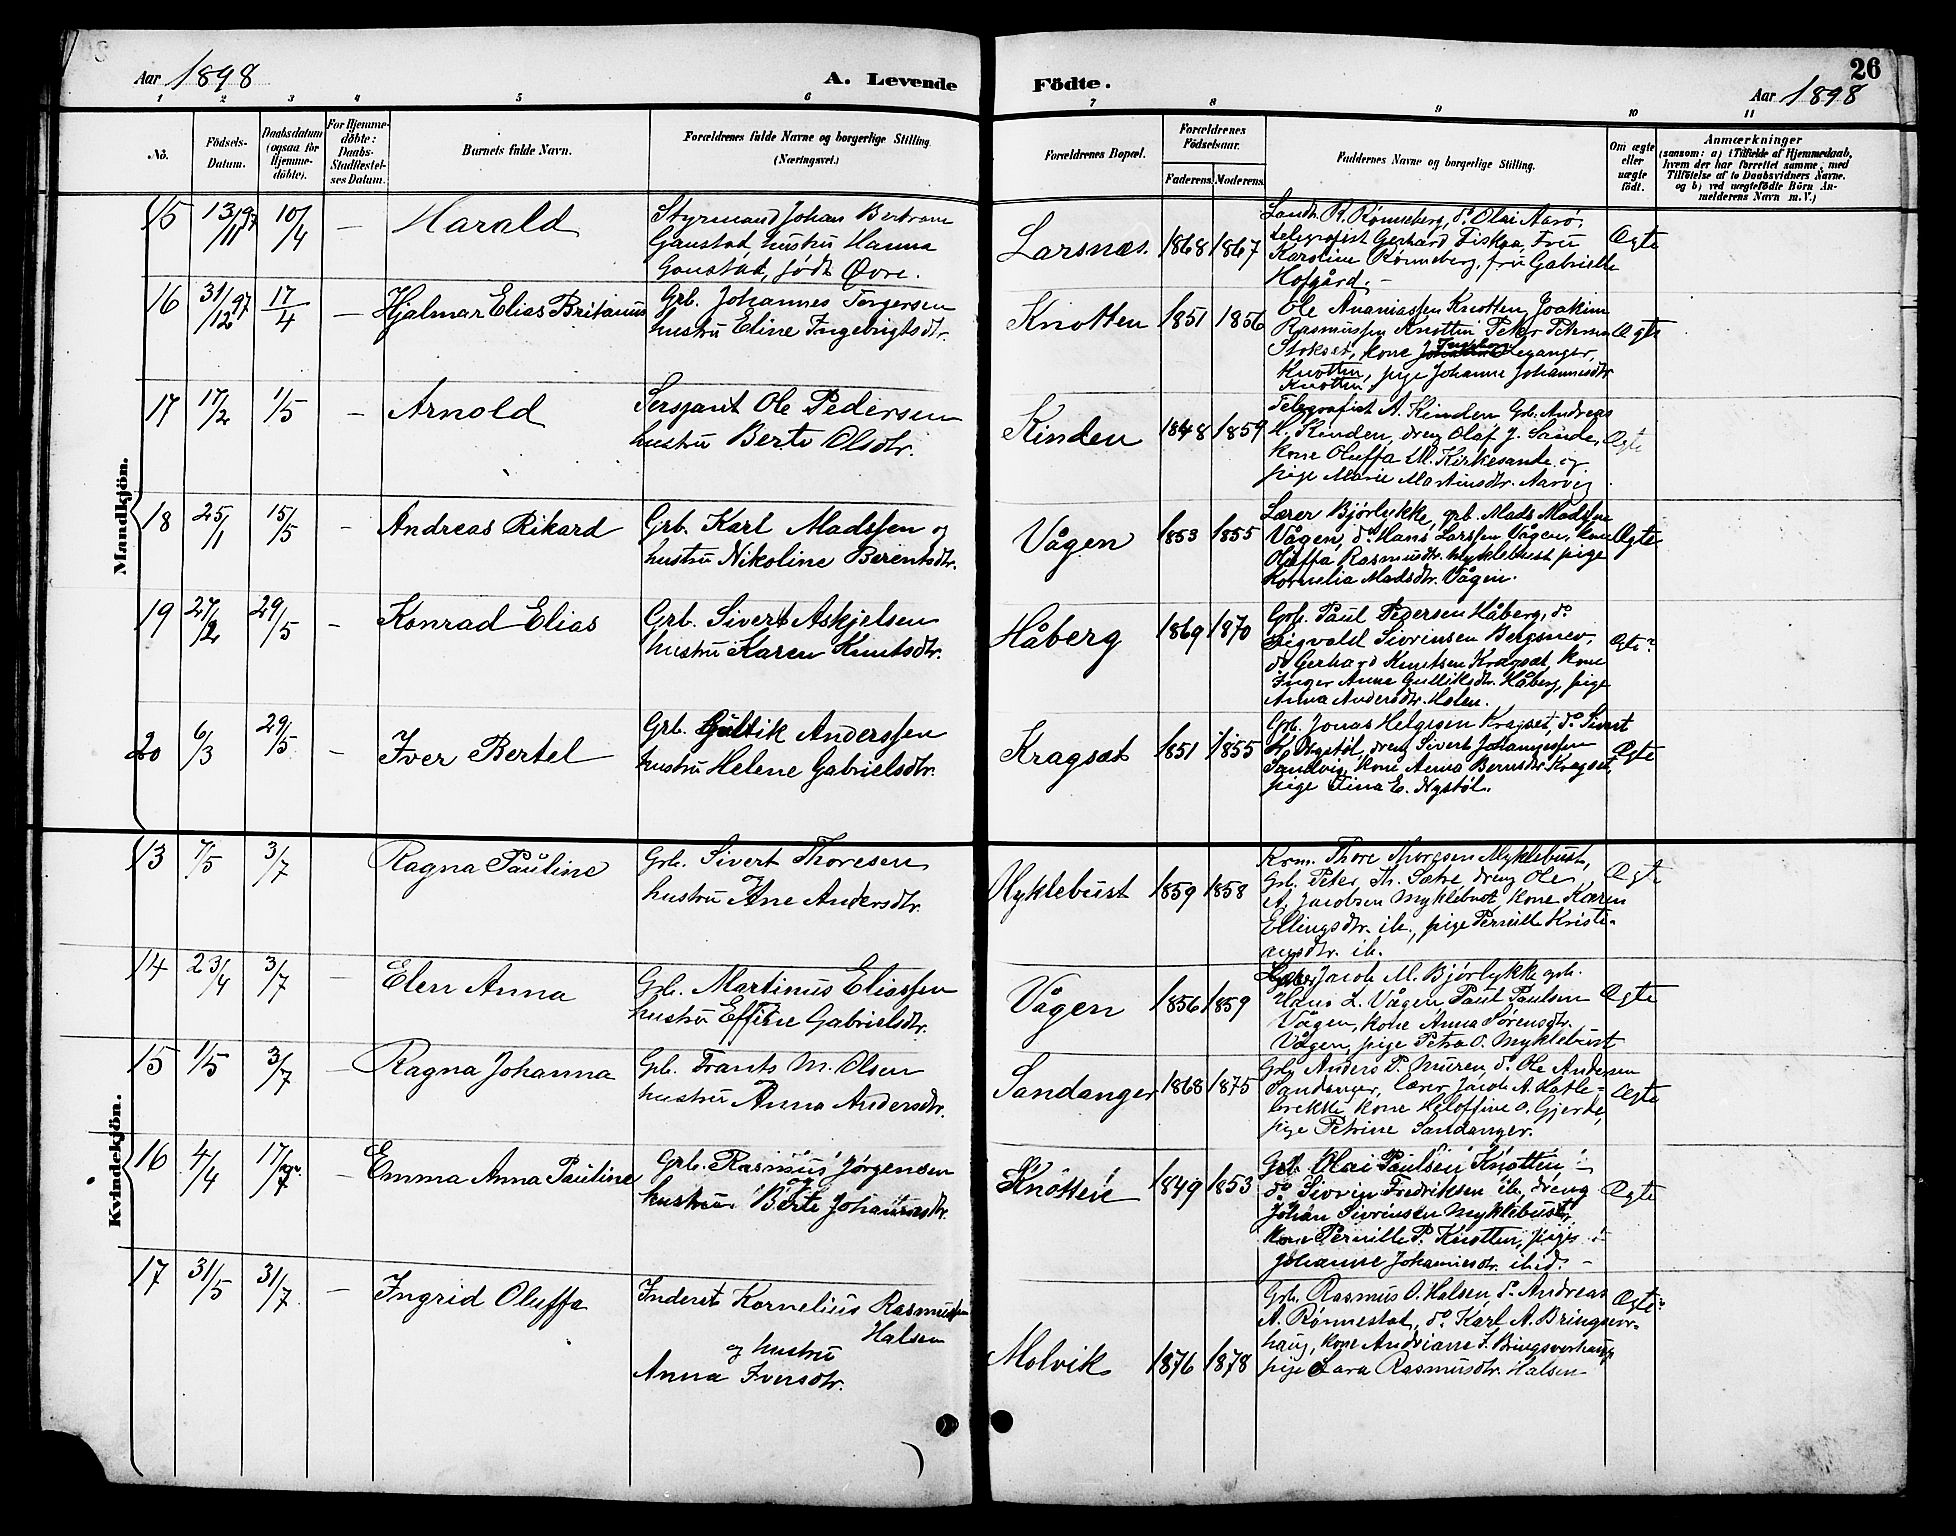 Aar 1898
A. Levende
Födte.
26
Aar 1898
1 2 3 4 5 6 7 8 9 10 11
No.
Födsels-
Datum.
Daabsdatum
(ogsaa for
Hjemme-
döbte).
For Hjemme-
döbte:
Daabs-
Stadfæstel-
ses Datum.
Barnets fulde Navn.
Forældrenes fulde Navne og borgerlige Stilling.
(Næringsvei.)
Forældrenes Bopæl.
Forældrenes
Födselsaar.
Faderens. Moderens.
Faddernes Navne og borgerlige Stilling.
Om ægte
eller
uægte
födt.
Anmærkninger
(saasom: a) i Tilfælde af Hjemmedaab,
hvem der har forrettet samme, med
Tilföielse af to Daabsvidners Navne.
og b) ved uægtefödte Börn An-
melderens Navn m. V.)
Mandkjön.
15 13/11 97 10/4 — Harald
Styrmand Johan Bertram
Gaustad, hustru Hanna
Gaustad, født Øvre.
Larsnæs. 1868 1867
Landh. R. Rønneberg, do Olai Aarø,
telegrafist Gerhard Fiskaa, Fru
Karoline Rønneberg, fru Gabrielle
Hofgård. —
Ægte
16 31/12 97 17/4 — Hjalmar Elias Britanus
Grb. Johannes Torgersen
hustru Eline Ingebrigtsdtr.
Knotten 1851 1856
Ole Ananiassen Knotten, Joakim
Rasmussen Knotten Peter Petersen
Stokset, kone Ingeborg Leganger,
Knotten, pige Johanne Johannesdtr
Knotten
Ægte
17 17/2 1/5 — Arnold
Sersjant Ole Pedersen
hustru Berte Olsdtr.
Kinden 1848 1859
Telegrafist A. Kinden, Grb. Andreas
H. Kinden, dreng Olaf J. Sande,
kone Oluffa M. Kirkesande og
pige Marie Martinsdtr. Aarvig
Ægte
18 25/1 15/5 — Andreas Rikard
Grb. Karl Madssen og
hustru Nikoline Berentsdtr.
Vågen 1853 1855
Lærer Bjørlykke, grb. Mads Madssen
Vågen, do Hans Larssen Vågen, kone
Oluffa Rasmusdtr. Myklebust pige
Kornelia Madsdtr. Vågen.
Ægte
19 27/2 29/5 — Konrad Elias
Grb. Sivert Askjelsen
hustru Karen Knutsdtr.
Håberg 1869 1870
Grb. Paul Pedersen Håberg, do
Sigvald Sivrinsen Bergsnev,
do Gerhard Knutsen Kragsæt, kone
Inger Anne Gulliksdtr. Håberg, pige
Anna Andersdtr. Holen.
Ægte
20 6/3 29/5 — Iver Bertel
Grb. Gullik Anderssen
hustru Helene Gabrielsdtr.
Kragsæt 1851 1855
Grb. Jonas Helgesen Kragset, do Sivert
K. Nystøl, dreng Sivert Johannessen
Sandvig, kone Anna Berntsdtr Kragset,
pige Stina E. Nystøl.
Ægte
Kvindekjön.
13 7/5 3/7 Ragna Pauline
Grb. Sivert Thoresen
hustru Ane Andersdtr.
Myklebust 1859 1858
Krm. Thore Thoresen Myklebust,
Grb. Peter Th. Sætre, dreng Ole
A. Jacobsen Myklebust, kone Karen
Ellingsdtr. ib., pige Pernille Kristi-
ansdtr. ib.
Ægte
14 23/4 3/7 — Elen Anna
Grb. Martinus Eliassen
hustru Effine Gabrielsdtr.
Vågen 1856 1859
Lærer Jacob M. Bjørlykke grb.
Hans L. Vågen Paul Paulsen
Vågen, kone Anna Sørensdtr.
Vågen, pige Petra O. Myklebust
Ægte
15 1/5 3/7 — Ragna Johanna
Grb. Frants M. Olsen
hustru Anna Andersdtr.
Sandanger 1868 1875
Grb. Anders P. Muren, do Ole Andersen
Sandanger, lærer Jacob A. Hatle-
brekke kone Heloffine O. Gjerde,
pige Petrine Sandanger.
Ægte
16 4/4 17/7 — Emma Anna Pauline
Grb. Rasmus Jørgensen
og
hustru Berte Johannesdtr.
Knotten 1849 1853
Grb. Olai Paulsen Knotten,
do Sivrin Fredriksen ib., dreng
Johan Sivrinsen Myklebust,
kone Pernille P. Knotten, pige
Johanne Johannesdtr. ibid. —
Ægte
17 31/5 31/7 — Ingrid Oluffa
Inderst Kornelius Rasmussen
Halsen
og hustru
Anna Iversdtr.
Molvik 1876 1878
Grb. Rasmus O. Halsen, do Andreas
A. Rønnestad, do Karl A. Bringsvor-
haug, kone Andriane J. Bringsvorhaug
pige Lara Rasmusdtr. Halsen
Ægte